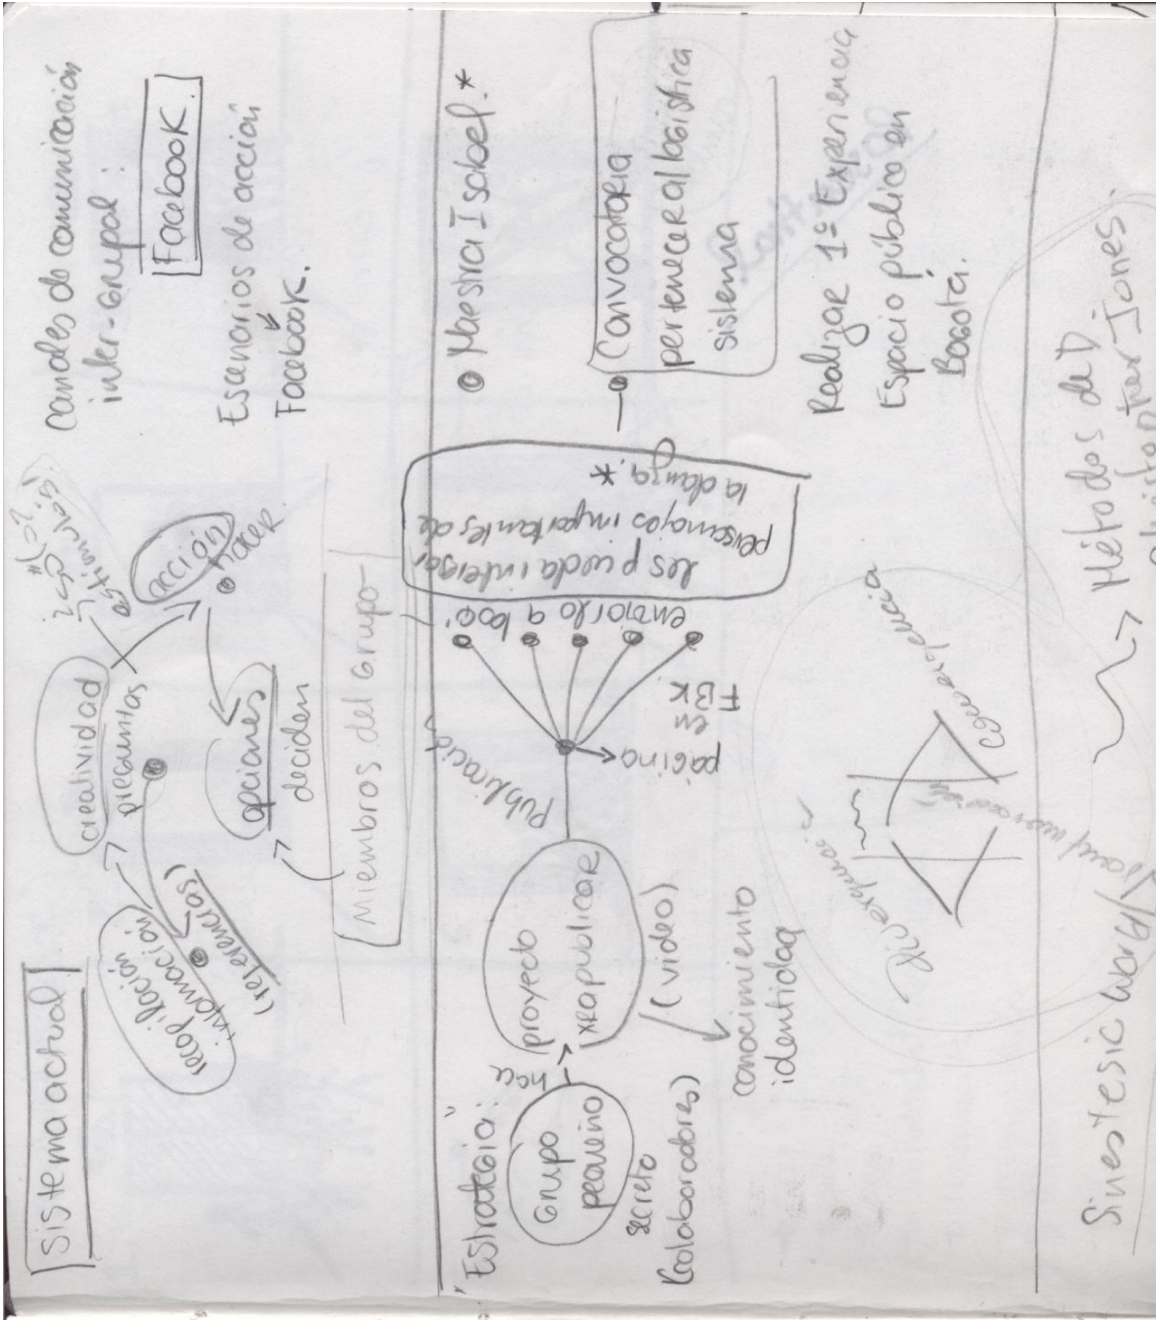 Sistema actual
recopilación
información
(referencias)
creatividad
preguntas
estímulos
acción
hacer
opciones
deciden
Miembros del Grupo
canales de comunicación
inter-Grupal :
Facebook.
Escenarios de acción
Facebook.
"Estrategia:"
Grupo
pequeño
secreto
(colaboradores)
hace
proyecto
xra publicar
(video)
conocimiento
identidad
Publicación
página
en
FBK
enviarlo a
les pueda interesar
personajes importantes de
la danza. *
Maestra Isabel. *
Convocatoria
pertenecer al logística
sistema
Realizar 1ª Experiencia
Espacio público en
Bogotá.
divergencia
convergencia
Sinestesic work
Métodos de D.
Jones.